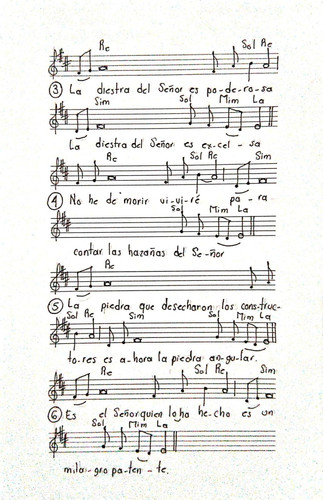 Re Sol Re
③ La diestra del Señor es po-de-ro-sa
Sim Sol Mim La
La diestra del Señor es ex-cel-sa
Re Sol Re Sim
④ No he de morir vi-vi-ré pa-ra
Sol Mim La
contar las hazañas del Se-ñor
Re
⑤ La piedra que desecharon los construc-
Sol Re Sim Sol Mim La
to-res es a-hora la piedra an-gu-lar.
Re Sol Re Sim
⑥ Es el Señor quien lo ha he-cho es un
Sol Mim La
mila-gro pa-ten-te.